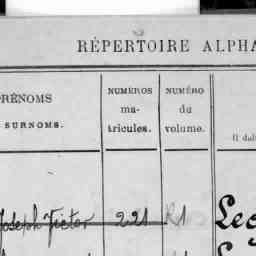 RÉPERTOIRE ALPHA
PRÉNOMS
SURNOMS.
NUMÉROS
ma-
tricules.
NUMÉRO
du
volume.
Il doit
Joseph Victor 221 R1 Leg